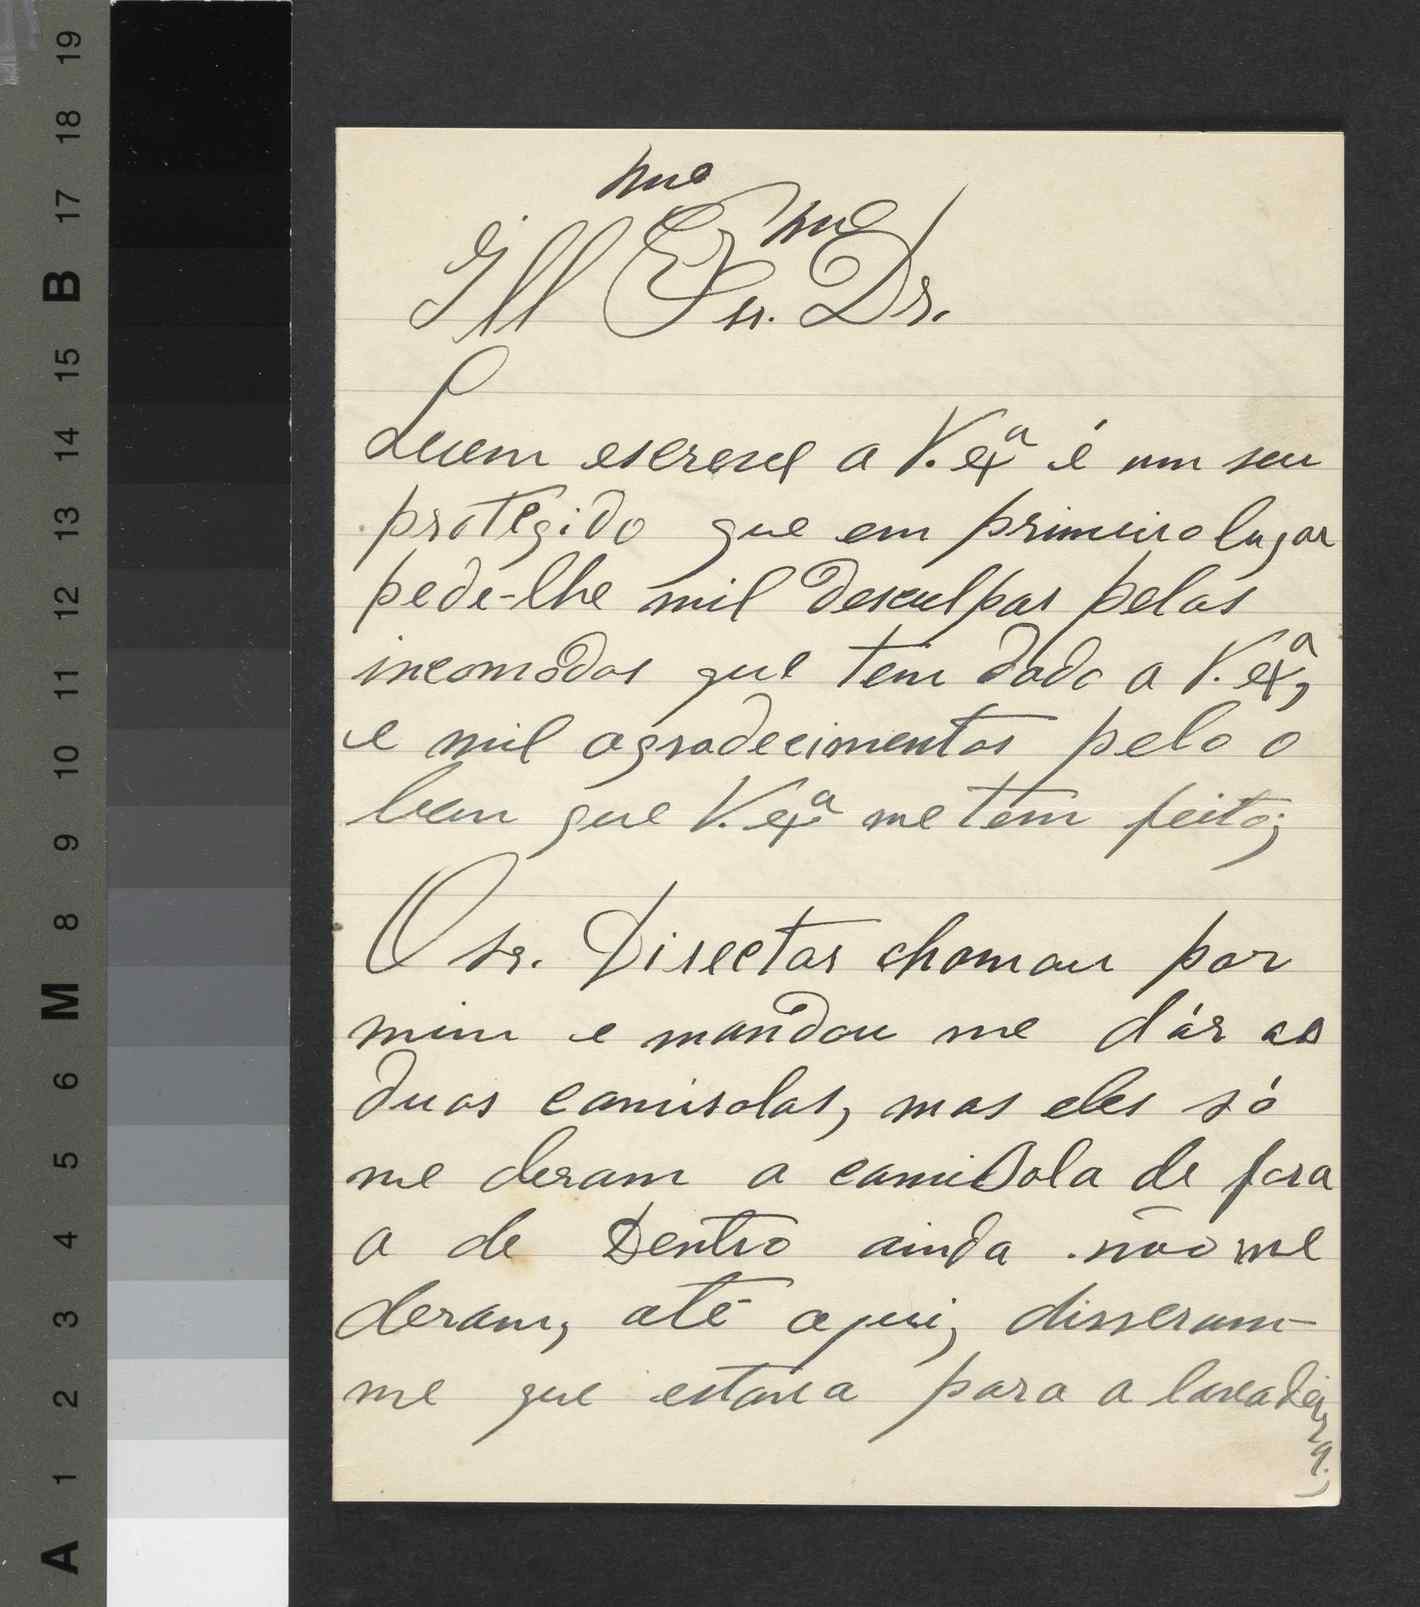 19
18
17
B
15
14
13
12
11
10
9
8
M
6
5
4
3
2
1
A
Ill^mo Ex^mo Sr. Dr.
Quem escreve a V. ex^a é um seu
protegido que em primeiro lugar
pede-lhe mil desculpas pelas
incomodos que tem dado a V. ex^a,
e mil agradecimentos pelo o
bem que V. ex^a me tem feito;
O Sr. Director chomou por
mim e mandou me dár as
duas camisolas, mas eles só
me deram a camisola de fora
a de Dentro ainda não me
deram, até aqui, disseram-
me que estava para a lavadeira.